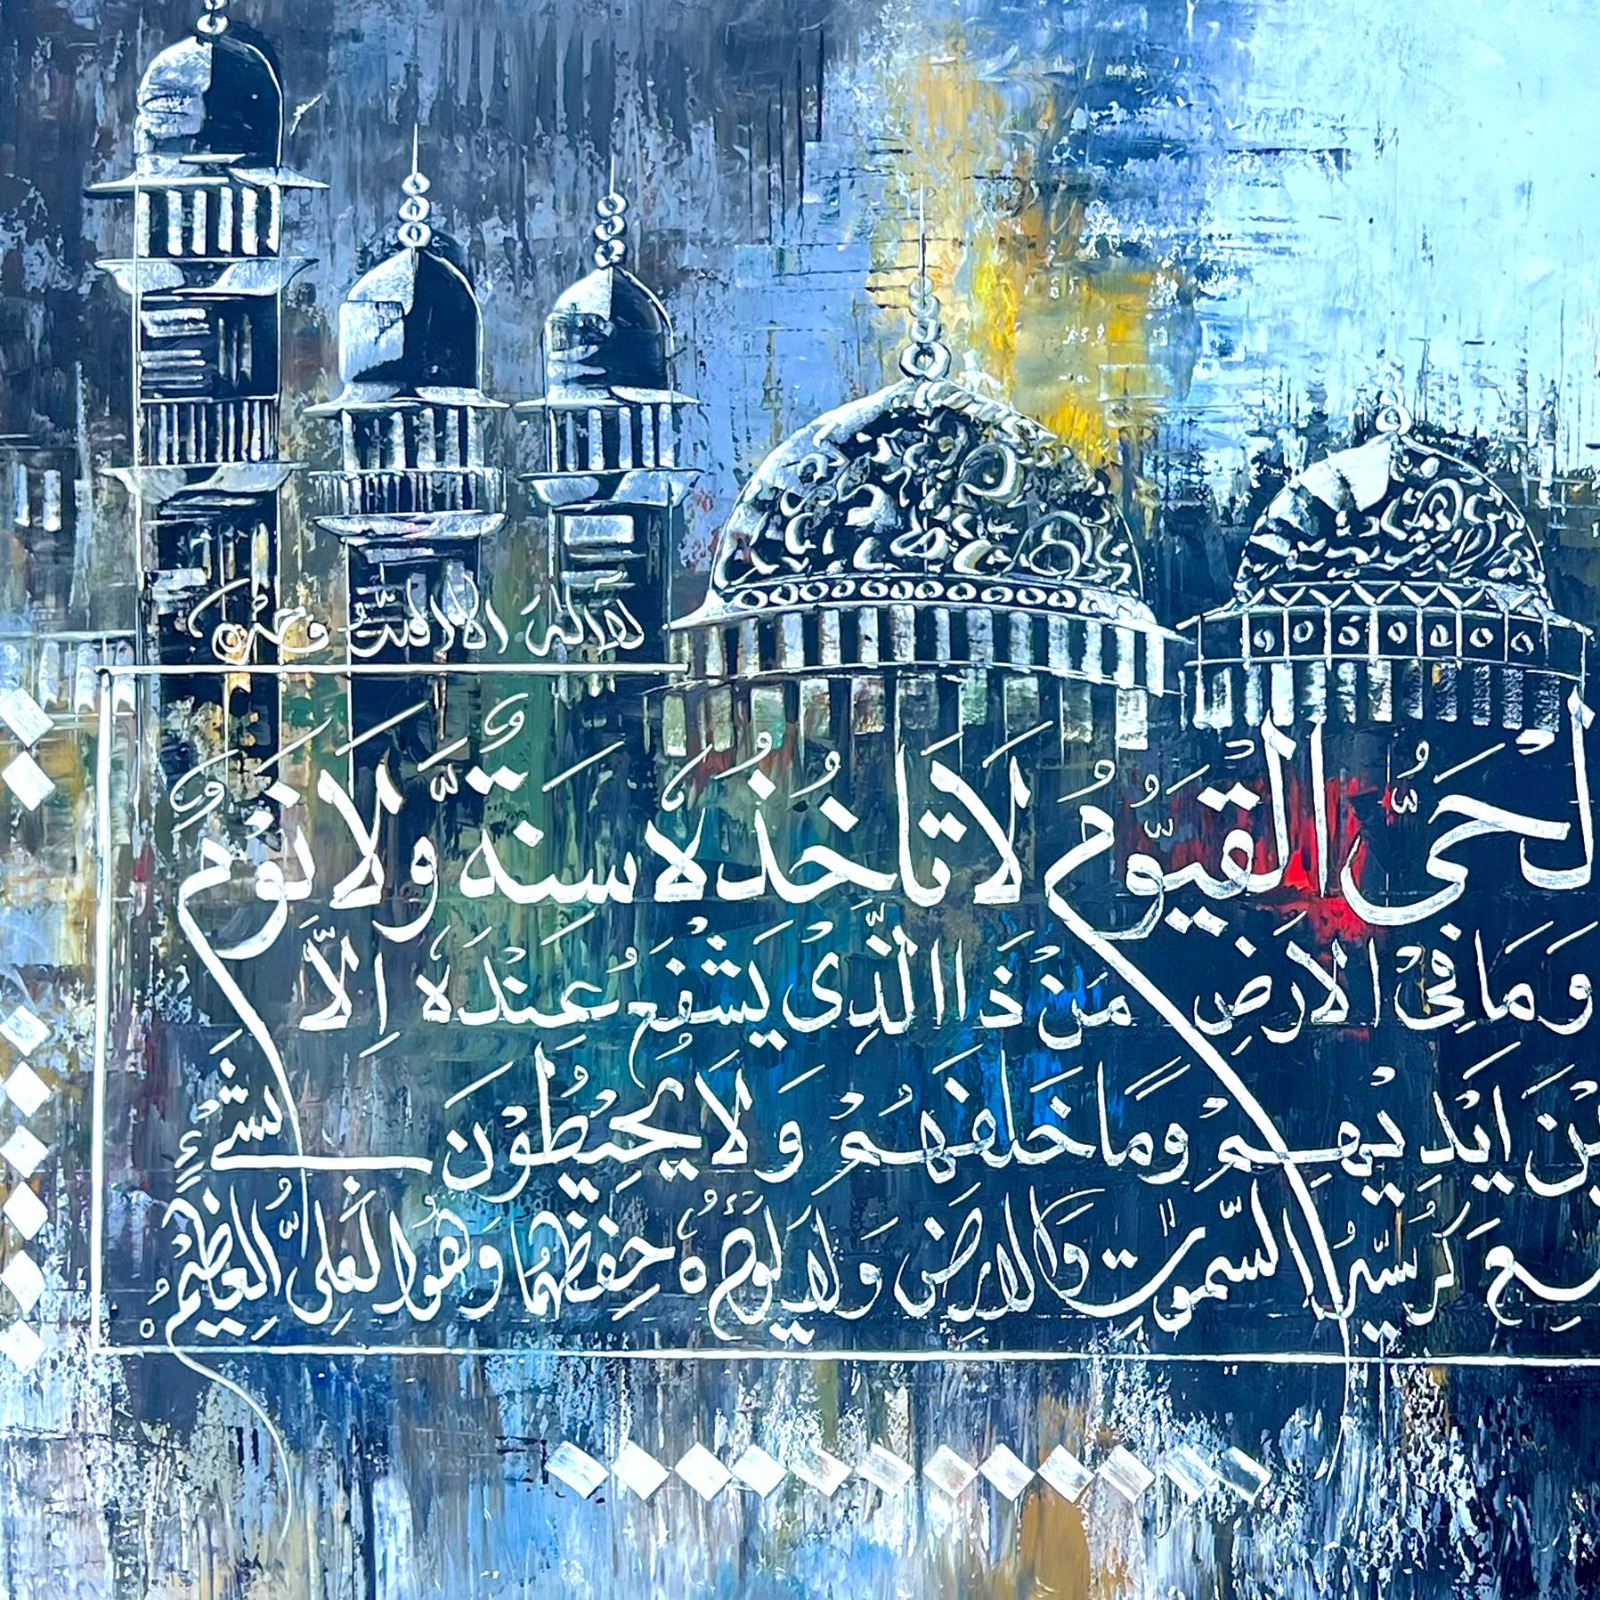 لا اله الا الله وحده
لْحَىُّ الْقَيُّوْمُ لَا تَاْخُذُهٗ سِنَةٌ وَّلَا نَوْمٌ
وَمَا فِى الْاَرْضِ مَنْ ذَا الَّذِىْ يَشْفَعُ عِنْدَهٗ اِلَّا
يْنَ اَيْدِيْهِمْ وَمَا خَلْفَهُمْ وَلَا يُحِيْطُوْنَ بِشَىْءٍ
سِعَ كُرْسِيُّهُ السَّمٰوٰتِ وَالْاَرْضَ وَلَا يَـُٔوْدُهٗ حِفْظُهُمَا وَهُوَ الْعَلِىُّ الْعَظِيْمُ